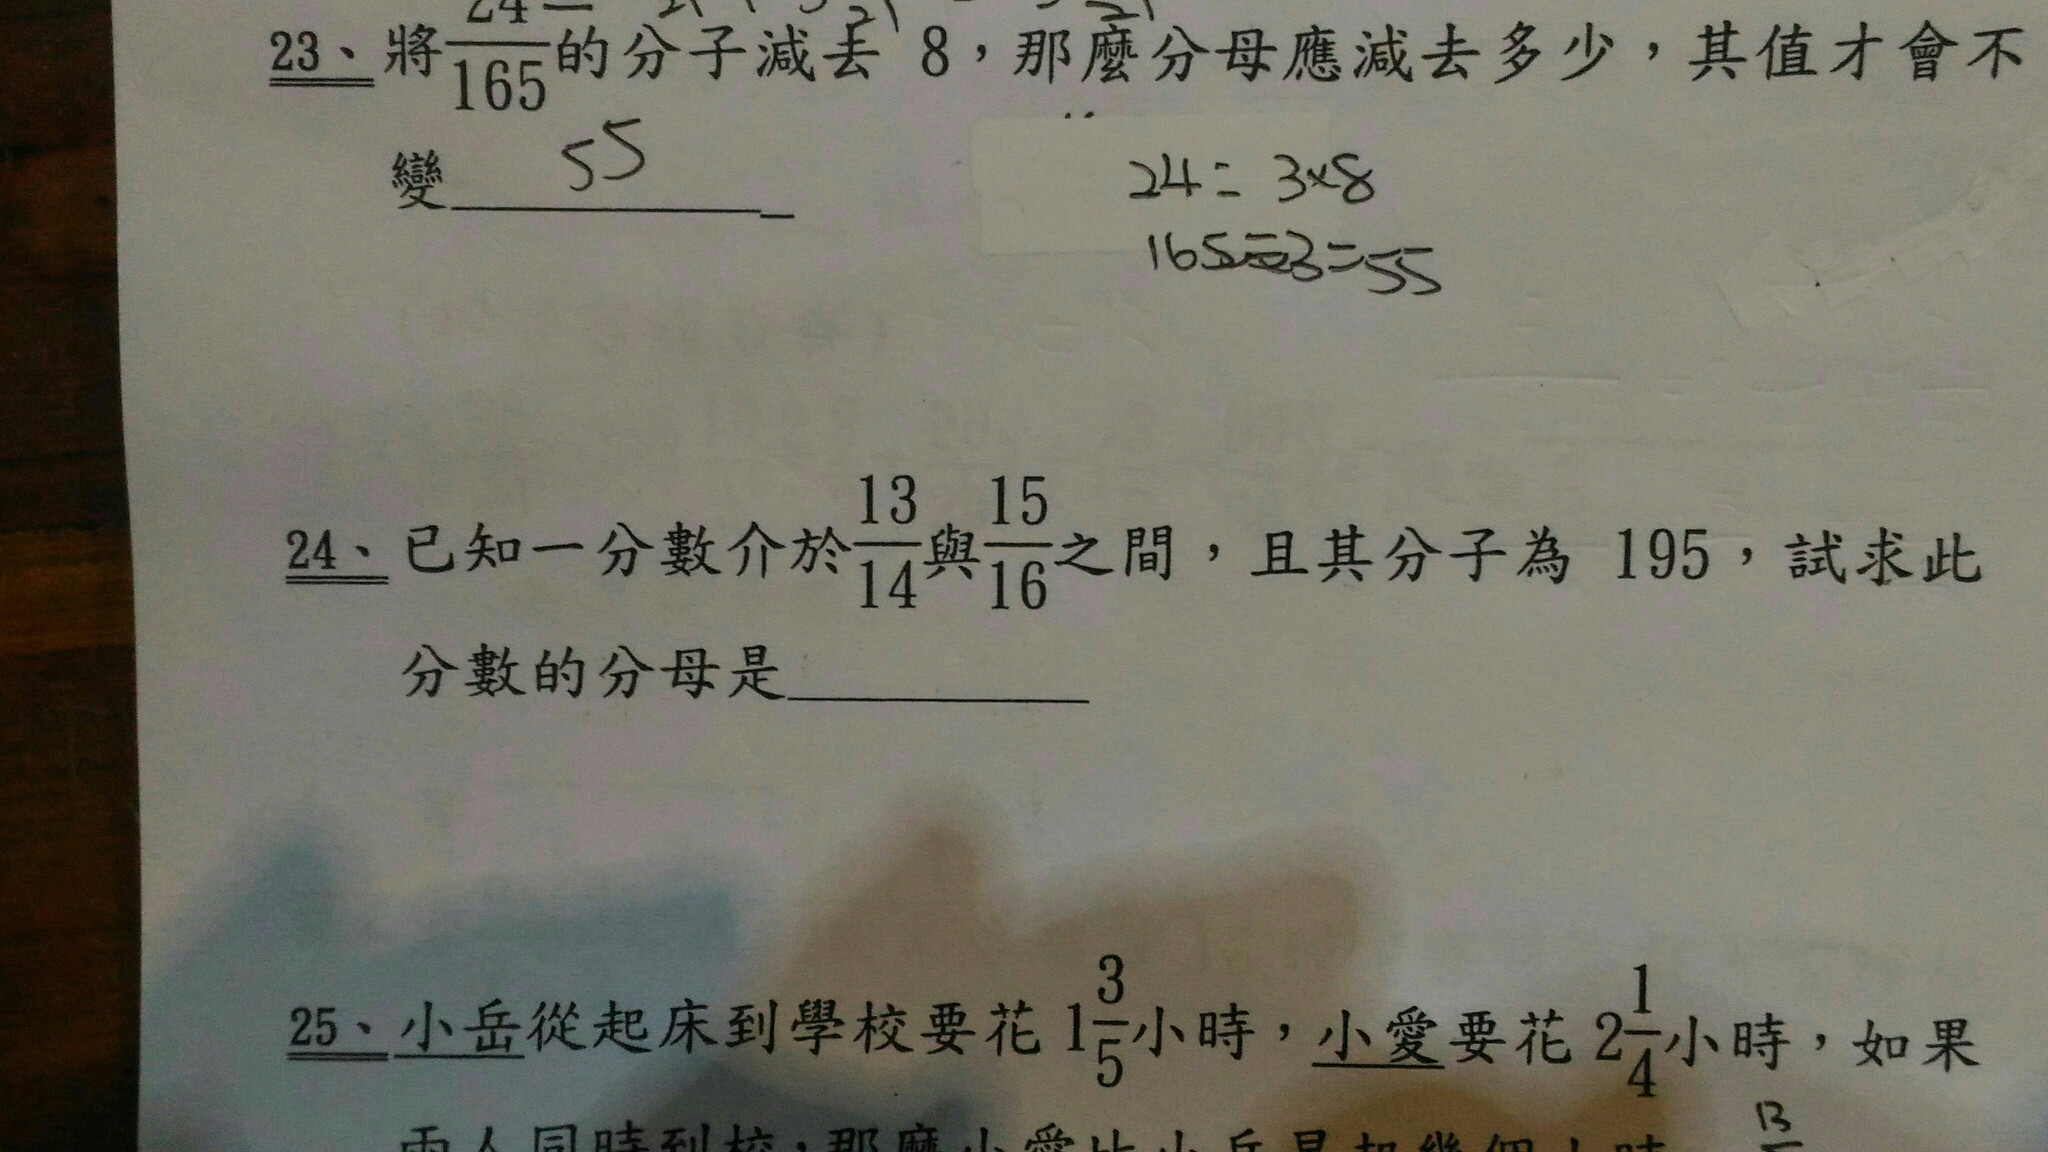 23、將24/165的分子減去 8，那麼分母應減去多少，其值才會不
變 55
24 = 3×8
165÷3=55
24、已知一分數介於13/14與15/16之間，且其分子為 195，試求此
分數的分母是
25、小岳從起床到學校要花 1 3/5小時，小愛要花 2 1/4小時，如果
兩人同時到校，那麼小愛比小岳早起幾個小時
13